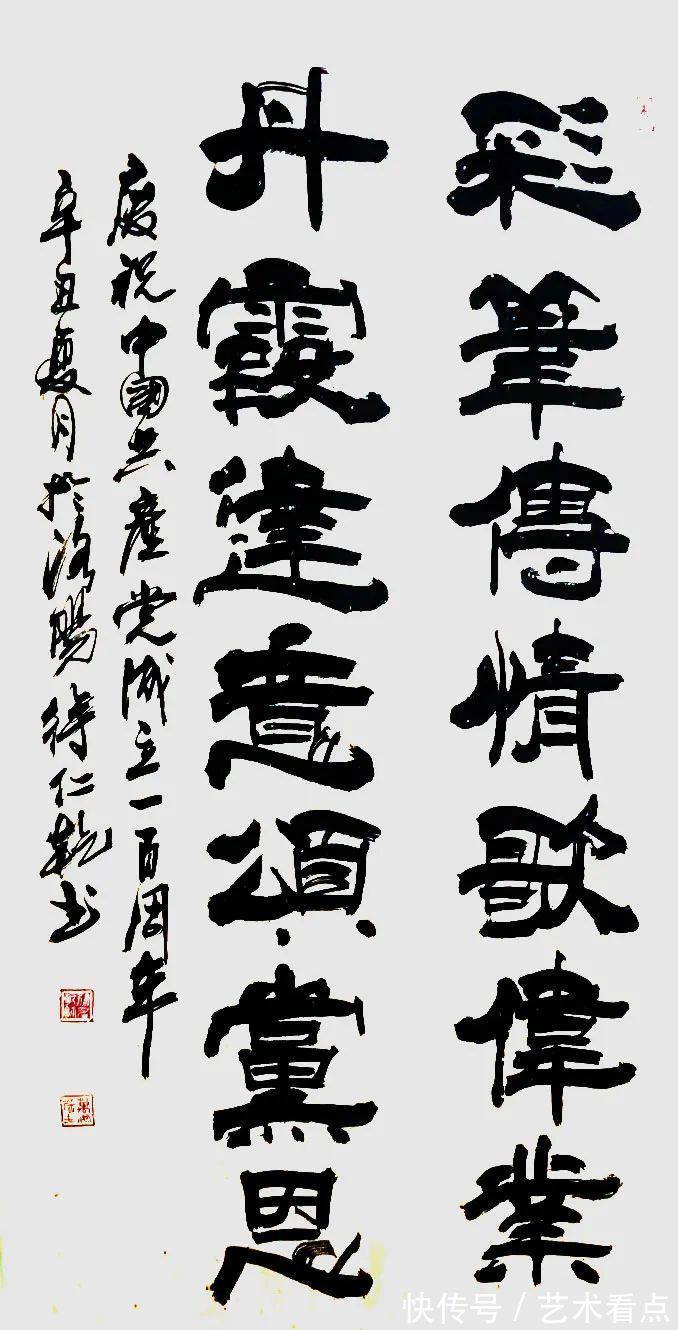 彩筆傳情歌偉業
丹霞達意頌黨恩
慶祝中國共產党成立一百周年
辛丑夏月於洛陽待仁乾书
快传号/艺术看点